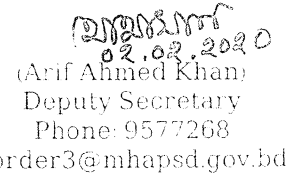 02.02.2020
(Arif Ahmed Khan)
Deputy Secretary
Phone: 9577268
order3@mhapsd.gov.bd